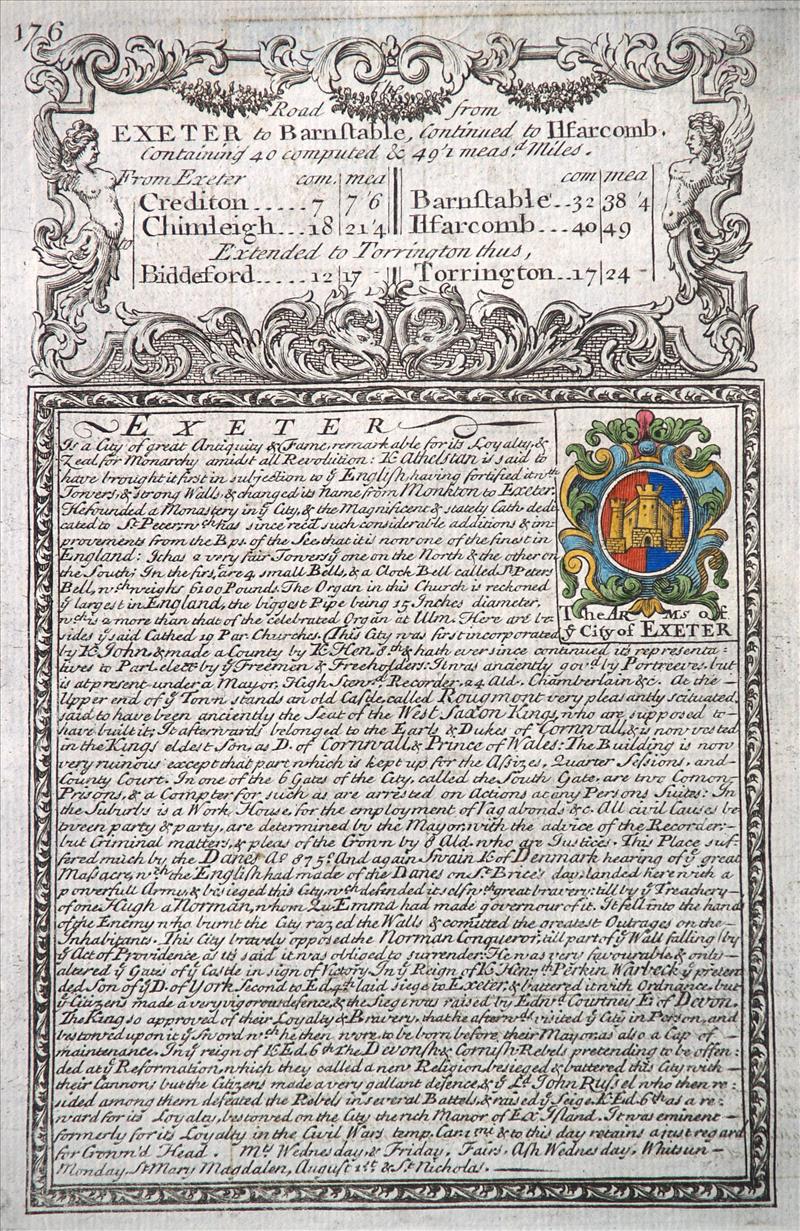 176
The
Road from
EXETER to Barnstable, Continued to Ilfarcomb.
Containing 40 computed & 49'1 meas.d Miles.
From Exeter com. mea com mea
Crediton.....7 7'6 Barnstable..32 38'4
Chimleigh...18 21'4 Ilfarcomb...40 49
to
Extended to Torrington thus,
Biddeford.....12 17 - Torrington..17 24 -
EXETER
Is a City of great Antiquity & Fame, remarkable for its Loyalty, &
Zeal for Monarchy amidst all Revolution: K. Athelstan is said to
have brought it first in subjection to ye English, having fortified it wth
Towers, & strong Walls, & changed its name from Monkton to Exeter.
He founded a Monastery in ye City, & the Magnificent & stately Cath. dedi
cated to St. Peter; wch has since recd such considerable additions & im-
provements from the Bps. of the See, that it is now one of the finest in
England: It has a very fair Towers ye one on the North & the other on
the South; In the first, are 4 small Bells, & a Clock Bell called St. Peters
Bell, wch weighs 6100 Pounds. The Organ in this Church is reckoned
ye largest in England, the biggest Pipe being 15 Inches diameter,
wch is 2 more than that of the celebrated Organ at Ulm. Here are be-
sides ye said Cathed. 19 Par. Churches. (This City was first incorporated
The ARMS of
ye City of EXETER
by K. John, & made a County by K. Hen. 8th & hath ever since continued its representa=
tives to Parl. elect by ye Freemen & Freeholders: It was anciently govd by Portreeves, but
is at present under a Mayor, High Stewd. Recorder, 24 Ald. Chamberlain &c. At the -
Upper end of ye Town stands an old Castle, called Rougmont very pleasantly scituated,
said to have been anciently the Seat of the West Saxon Kings, who are supposed to-
have built it; It afterwards belonged to the Earls & Dukes of Cornwall, & is now vested
in the Kings eldest Son, as D. of Cornwall, & Prince of Wales: The Building is now
very ruinous except that part which is kept up for the Assizes, Quarter Sessions, and-
County Court. In one of the 6 Gates of the City, called the South Gate, are two Comon-
Prisons, & a Compter for such as are arrested on Actions at any Persons Suites: In
the Suburbs is a Work House, for the employment of Vagabonds &c. All civil Causes be-
tween party & party, are determined by the Mayor, with the advice of the Recorder;-
but Criminal matters, & pleas of the Crown by 8 Ald. who are Justices. This Place suf-
fered much by the Danes Ao 875. And again Swain K. of Denmark hearing of ye great
Massacre, wch the English had made of the Danes on St. Brice's day, landed here with a
powerfull Army, & besieged this City, wch defended it self wth great bravery; till by ye Treachery-
of one Hugh a Norman, whom Qu. Emma had made governour of it. It fell into the hands
of the Enemy who burnt the City razed the Walls & comitted the greatest Outrages on the-
Inhabitants. This City bravely opposed the Norman Conqueror, till part of ye Wall falling (by
ye Act of Providence as tis said it was obliged to surrender: He was very favourable, & only-
altered ye Gates of ye Castle in sign of Victory. In ye Reign of K. Hen. 7th Perkin Warbeck ye preten
ded Son of ye D. of York Second to Ed. 4th laid siege to Exeter, & battered it with Ordnance, but
ye Citizens made a very vigorous defence, & the Siege was raised by Edwd Courtney E. of Devon.
The King so approved of their Loyalty & Bravery, that he afterwds visited ye City in Person, and
bestowed upon it ye Sword wch he then wore, to be born before their Mayor, as also a Cap of -
maintenance. In ye reign of K. Ed. 6th The Devonsh. & Cornish Rebels pretending to be offen=
ded at ye Reformation, which they called a new Religion, besieged & battered this City with -
their Cannons, but the Citizens made a very gallant defence, & ye Ld. John Russel who then re=
sided among them defeated the Rebels in several Battels, & raised ye Seige. K. Ed. 6th as a re=
ward for its Loyalty, bestowed on the City the rich Manor of Ex Island. It was eminent -
formerly for its Loyalty in the Civil Wars temp. Car. 1mi & to this day retains a just regard
for Crown'd Head. Mts Wednesday, & Friday, Fairs. Ash Wednesday, Whitsun-
Monday, St. Mary Magdalen, August 1st. & St. Nicholas.